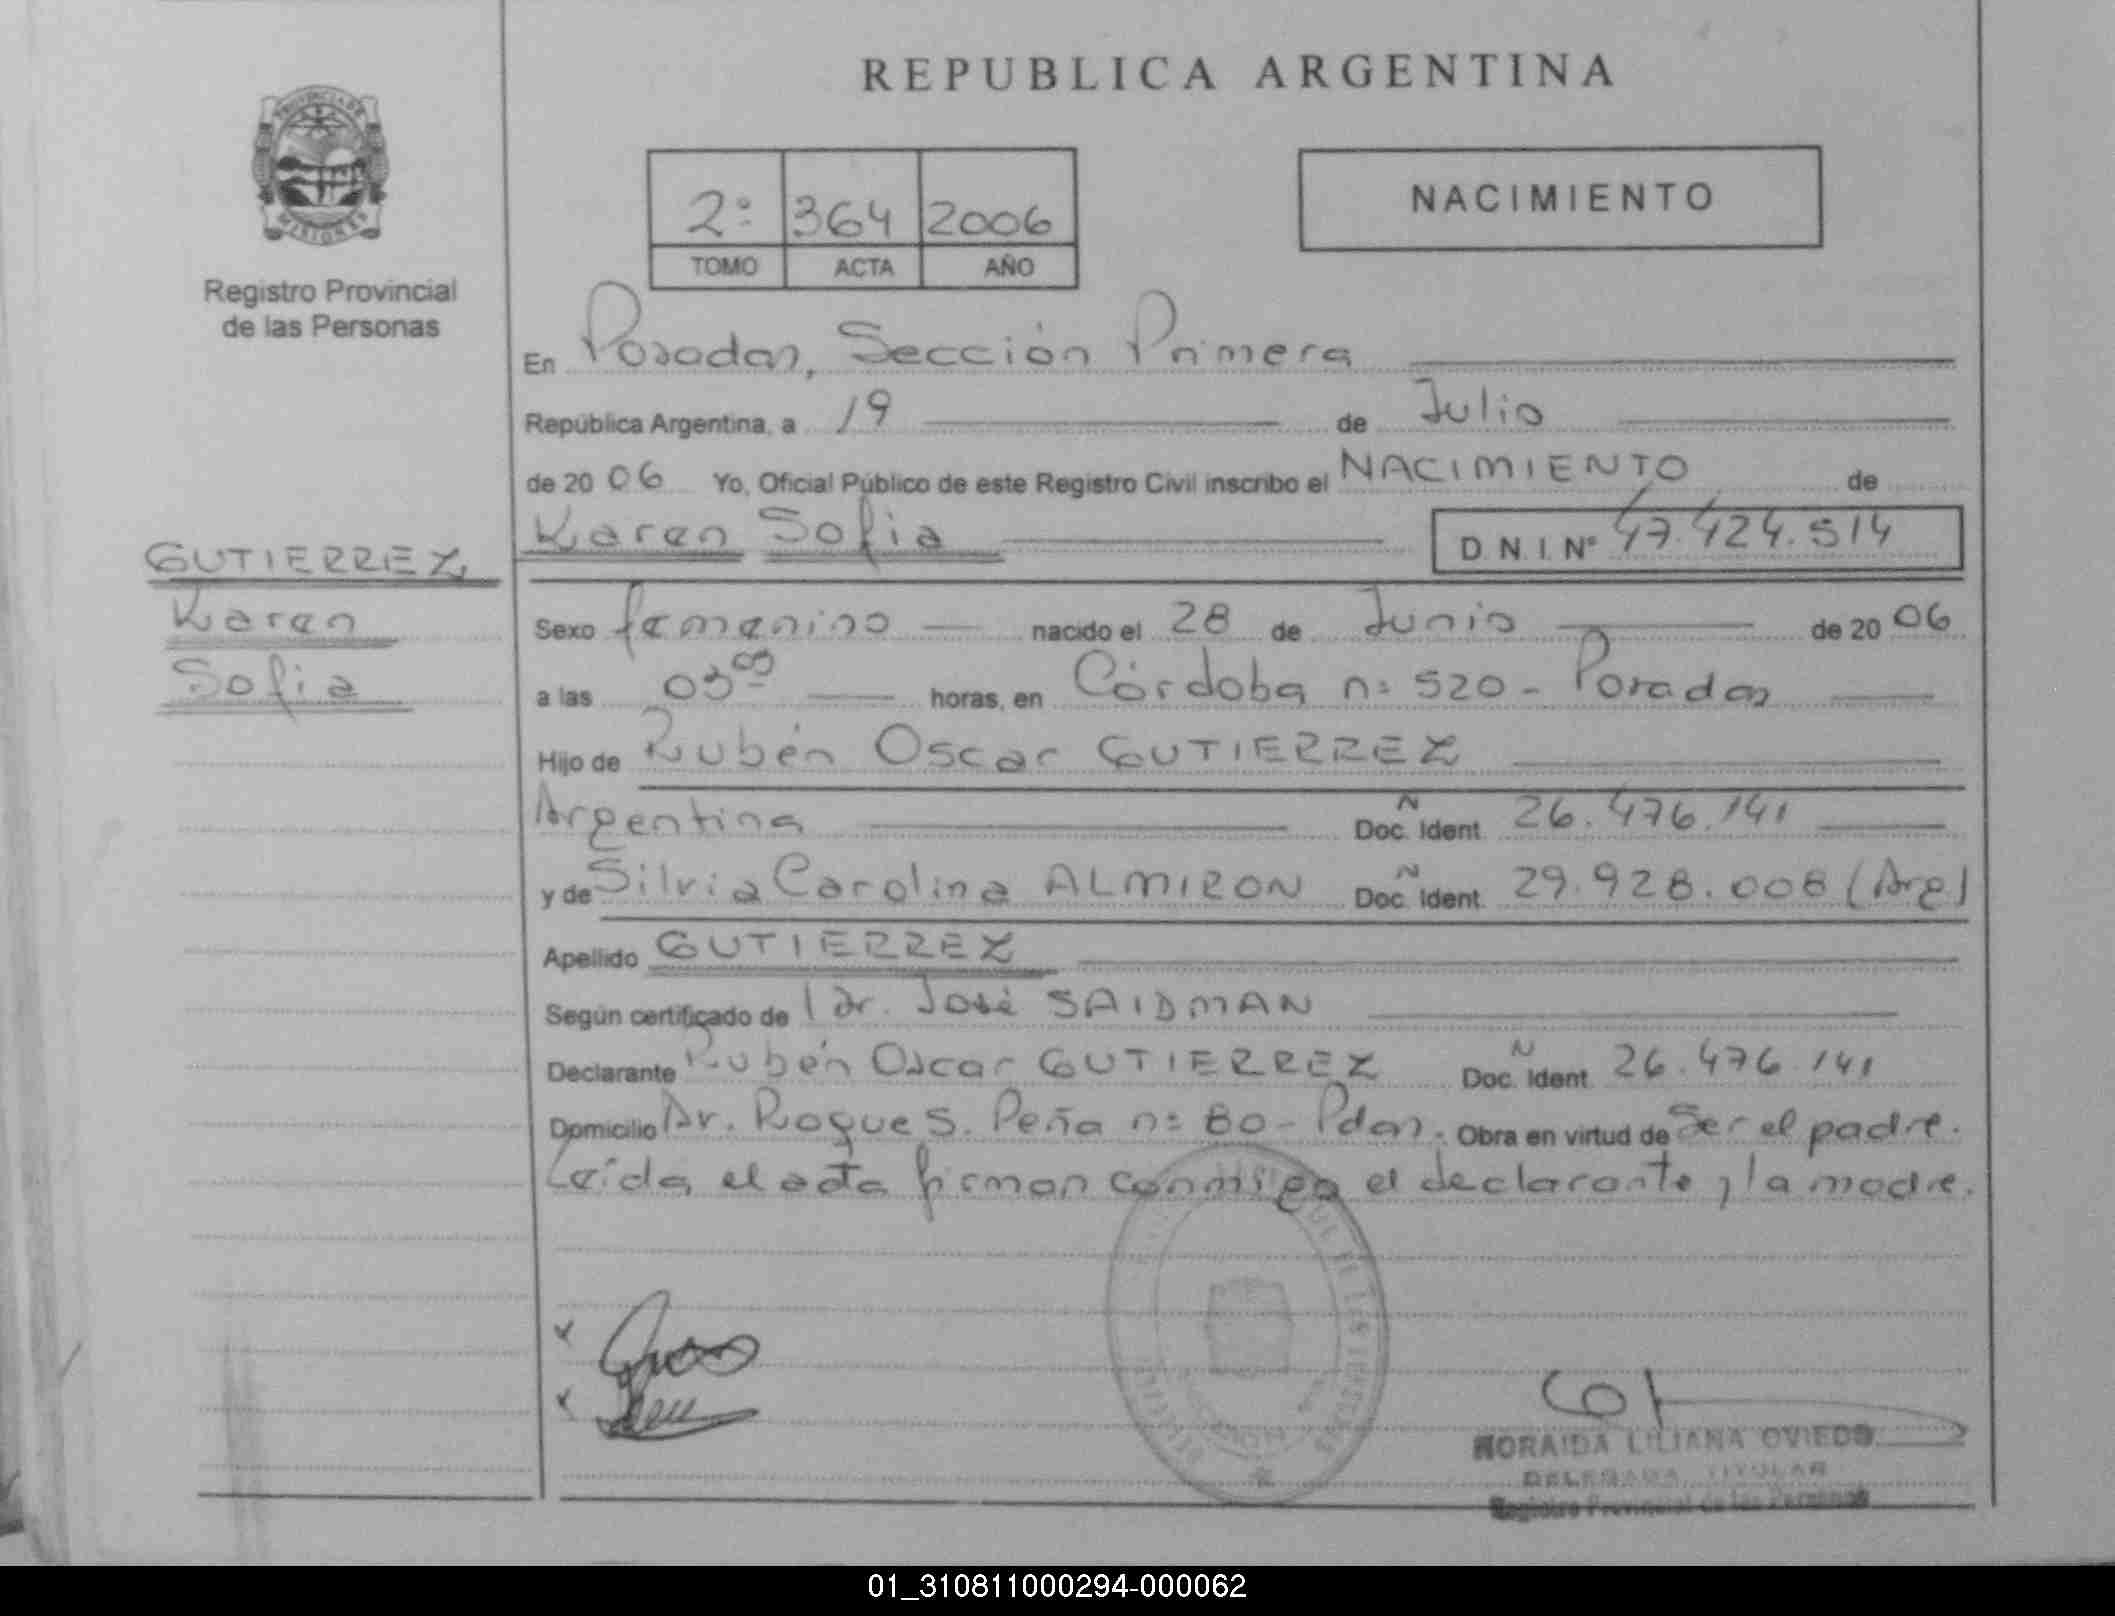 REPUBLICA ARGENTINA
PROVINCIA DE
MISIONES
Registro Provincial
de las Personas
2º 364 2006
TOMO ACTA AÑO
NACIMIENTO
En Posadas, Sección Primera
República Argentina, a 19 de Julio
de 20 06 Yo, Oficial Público de este Registro Civil inscribo el NACIMIENTO de
Karen Sofia D.N.I. Nº 47.424.514
GUTIERREZ,
Karen
Sofia
Sexo femenino nacido el 28 de Junio de 20 06
a las 03 horas, en Córdoba nº 520 - Posadas
Hijo de Rubén Oscar GUTIERREZ
Argentina Ñ Doc. Ident. 26.476.141
y de Silvia Carolina ALMIRON Ñ Doc. Ident. 29.928.008 (Arg)
Apellido GUTIERREZ
Según certificado de l dr. José SAIDMAN
Declarante Rubén Oscar GUTIERREZ Ñ Doc. Ident. 26.476.141
Domicilio Av. Roque S. Peña nº 80 - Pdas. Obra en virtud de Ser el padre.
Leída el acta firman conmigo el declarante y la madre.
NORAIDA LILIANA OVIEDO
DELEGADA TITULAR
Registro Provincial de las Personas
01_310811000294-000062